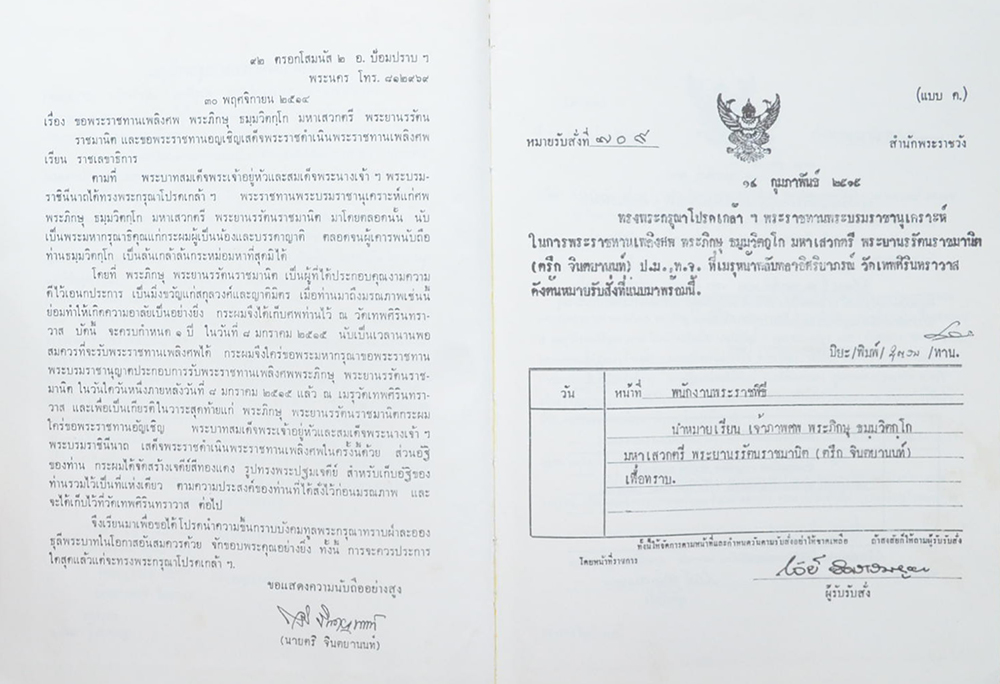 ๙๒ ตรอกโสมนัส ๒ อ. ป้อมปราบ ฯ
พระนคร โทร. ๘๑๒๙๖๙
๓๐ พฤศจิกายน ๒๕๑๔
เรื่อง ขอพระราชทานเพลิงศพ พระภิกษุ ธมฺมวิตกฺโก มหาเสวกตรี พระยานรรัตน
ราชมานิต และขอพระราชทานอญเชิญเสด็จพระราชดำเนินพระราชทานเพลิงศพ
เรียน ราชเลขาธิการ
ตามที่ พระบาทสมเด็จพระเจ้าอยู่หัวและสมเด็จพระนางเจ้า ฯ พระบรม-
ราชินีนาถได้ทรงพระกรุณาโปรดเกล้า ฯ พระราชทานพระบรมราชานุเคราะห์แก่ศพ
พระภิกษุ ธมฺมวิตกฺโก มหาเสวกตรี พระยานรรัตนราชมานิต มาโดยตลอดนั้น นับ
เป็นพระมหากรุณาธิคุณแก่กระผมผู้เป็นน้องและบรรดาญาติ ตลอดจนผู้เคารพนับถือ
ท่านธมฺมวิตกฺโก เป็นล้นเกล้าล้นกระหม่อมหาที่สุดมิได้
โดยที่ พระภิกษุ พระยานรรัตนราชมานิต เป็นผู้ที่ได้ประกอบคุณงามความ
ดีไว้เอนกประการ เป็นมิ่งขวัญแก่สกุลวงศ์และญาติมิตร เมื่อท่านมาถึงมรณภาพเช่นนี้
ย่อมทำให้เกิดความอาลัยเป็นอย่างยิ่ง กระผมจึงได้เก็บศพท่านไว้ ณ วัดเทพศิรินทรา-
วาส บัดนี้ จะครบกำหนด ๑ ปี ในวันที่ ๘ มกราคม ๒๕๑๕ นับเป็นเวลานานพอ
สมควรที่จะรับพระราชทานเพลิงศพได้ กระผมจึงใคร่ขอพระมหากรุณาขอพระราชทาน
พระบรมราชานุญาตประกอบการรับพระราชทานเพลิงศพพระภิกษุ พระยานรรัตนราช-
มานิต ในวันใดวันหนึ่งภายหลังวันที่ ๘ มกราคม ๒๕๑๕ แล้ว ณ เมรุวัดเทพศิรินทรา-
วาส และเพื่อเป็นเกียรติในวาระสุดท้ายแก่ พระภิกษุ พระยานรรัตนราชมานิตกระผม
ใคร่ขอพระราชทานอัญเชิญ พระบาทสมเด็จพระเจ้าอยู่หัวและสมเด็จพระนางเจ้า ฯ
พระบรมราชินีนาถ เสด็จพระราชดำเนินพระราชทานเพลิงศพในครั้งนี้ด้วย ส่วนอัฐิ
ของท่าน กระผมได้จัดสร้างเจดีย์สีทองแดง รูปทรงพระปฐมเจดีย์ สำหรับเก็บอัฐิของ
ท่านรวมไว้เป็นที่แห่งเดียว ตามความประสงค์ของท่านที่ได้สั่งไว้ก่อนมรณภาพ และ
จะได้เก็บไว้ที่วัดเทพศิรินทราวาส ต่อไป
จึงเรียนมาเพื่อขอได้โปรดนำความขึ้นกราบบังคมทูลพระกรุณาทราบฝ่าละออง
ธุลีพระบาทในโอกาสอันสมควรด้วย จักขอบพระคุณอย่างยิ่ง ทั้งนี้ การจะควรประการ
ใดสุดแล้วแต่จะทรงพระกรุณาโปรดเกล้า ฯ.
ขอแสดงความนับถืออย่างสูง
(นายตรี จินตยานนท์)
(แบบ ค.)
หมายรับสั่งที่ ๗๐๙
สำนักพระราชวัง
๑๔ กุมภาพันธ์ ๒๕๑๕
ทรงพระกรุณาโปรดเกล้า ฯ พระราชทานพระบรมราชานุเคราะห์
ในการพระราชทานเพลิงศพ พระภิกษุ ธมฺมวิตกฺโก มหาเสวกตรี พระยานรรัตนราชมานิต
(ตรึก จินตยานนท์) ป.ม.,ท.จ. ที่เมรุหน้าพลับพลาอิศริยาภรณ์ วัดเทพศิรินทราวาส
ดังต้นหมายรับสั่งที่แนบมาพร้อมนี้.
ปิยะ/พิมพ์/ /ทาน.
วัน
หน้าที่ พนักงานพระราชพิธี
นำหมายเรียน เจ้าภาพศพ พระภิกษุ ธมฺมวิตกฺโก
มหาเสวกตรี พระยานรรัตนราชมานิต (ตรึก จินตยานนท์)
เพื่อทราบ.
ทั้งนี้ให้จัดการตามหน้าที่และกำหนดวันตามรับสั่งอย่าให้ขาดเหลือ ถ้าสงสัยก็ให้ถามผู้รับรับสั่ง
โดยหน้าที่ราชการ
ผู้รับรับสั่ง